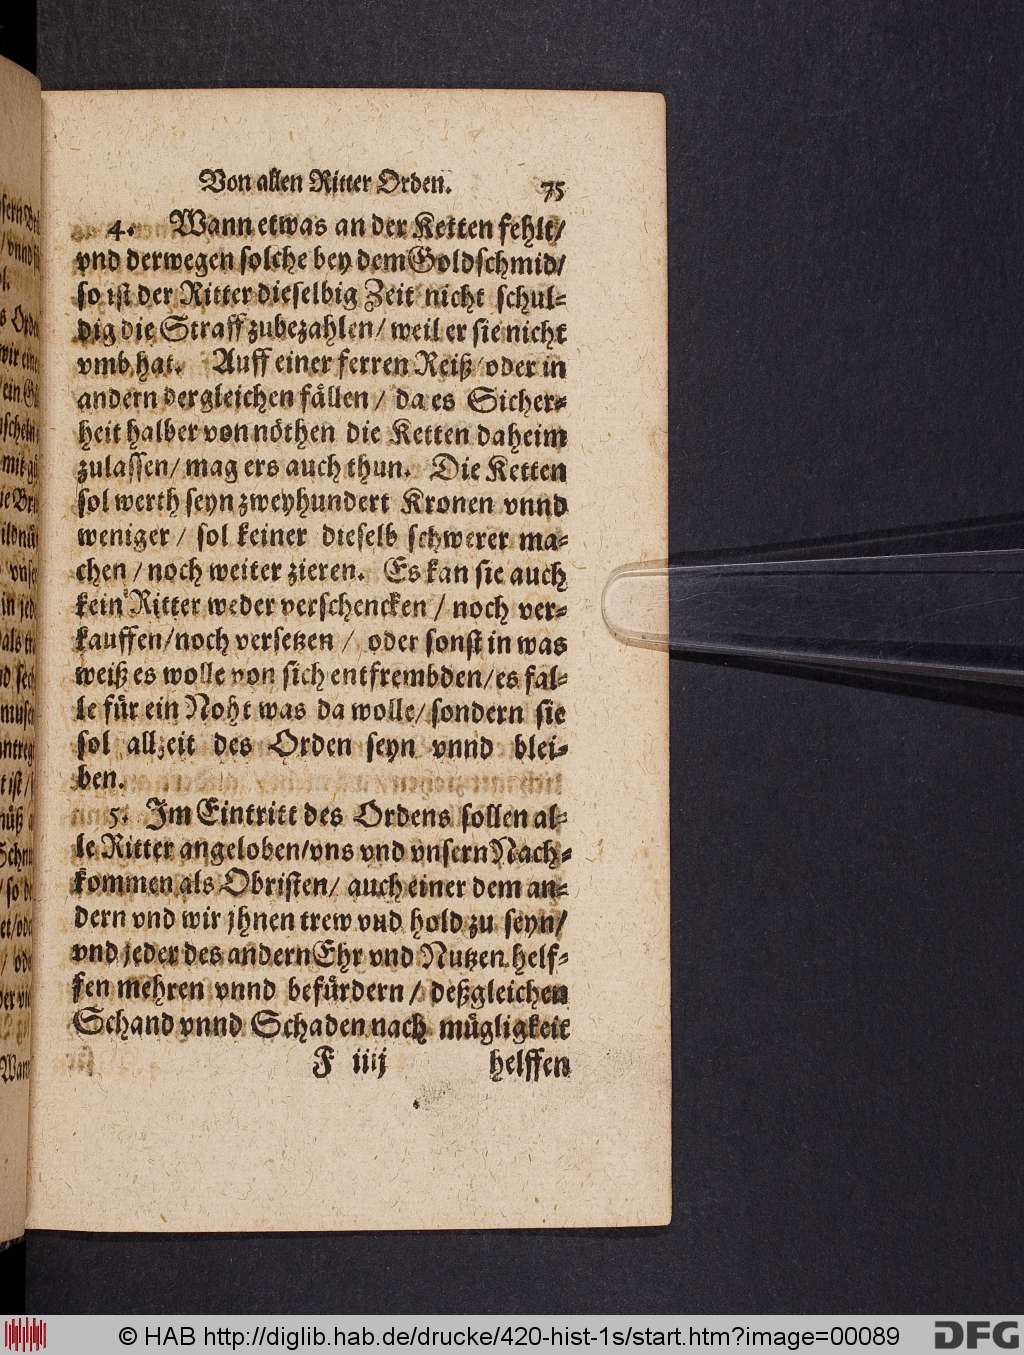 Von allen Ritter Orden. 75
4. Wann etwas an der Ketten fehlt/
vnd derwegen solche bey dem Goldschmid/
so ist der Ritter dieselbig Zeit nicht schul-
dig die Straff zubezahlen/ weil er sie nicht
vmb hat. Auff einer ferren Reiß/ oder in
andern dergleichen fällen/ da es Sicher-
heit halber von nöthen die Ketten daheim
zulassen/ mag ers auch thun. Die Ketten
sol werth seyn zweyhundert Kronen vnnd
weniger/ sol keiner dieselb schwerer ma-
chen/ noch weiter zieren. Es kan sie auch
kein Ritter weder verschencken/ noch ver-
kauffen/ noch versetzen/ oder sonst in was
weiß es wolle von sich entfrembden/ es fal-
le für ein Noht was da wolle/ sondern sie
sol allzeit des Orden seyn vnnd blei-
ben.
5. Im Eintritt des Ordens sollen al-
le Ritter angeloben/ vns vnd vnsern Nach-
kommen als Obristen/ auch einer dem an-
dern vnd wir jhnen trew vnd hold zu seyn/
vnd jeder des andern Ehr vnd Nutzen helf-
fen mehren vnnd befürdern/ deßgleichen
Schand vnnd Schaden nach mügligkeit
F iiij helffen
© HAB http://diglib.hab.de/drucke/420-hist-1s/start.htm?image=00089
DFG